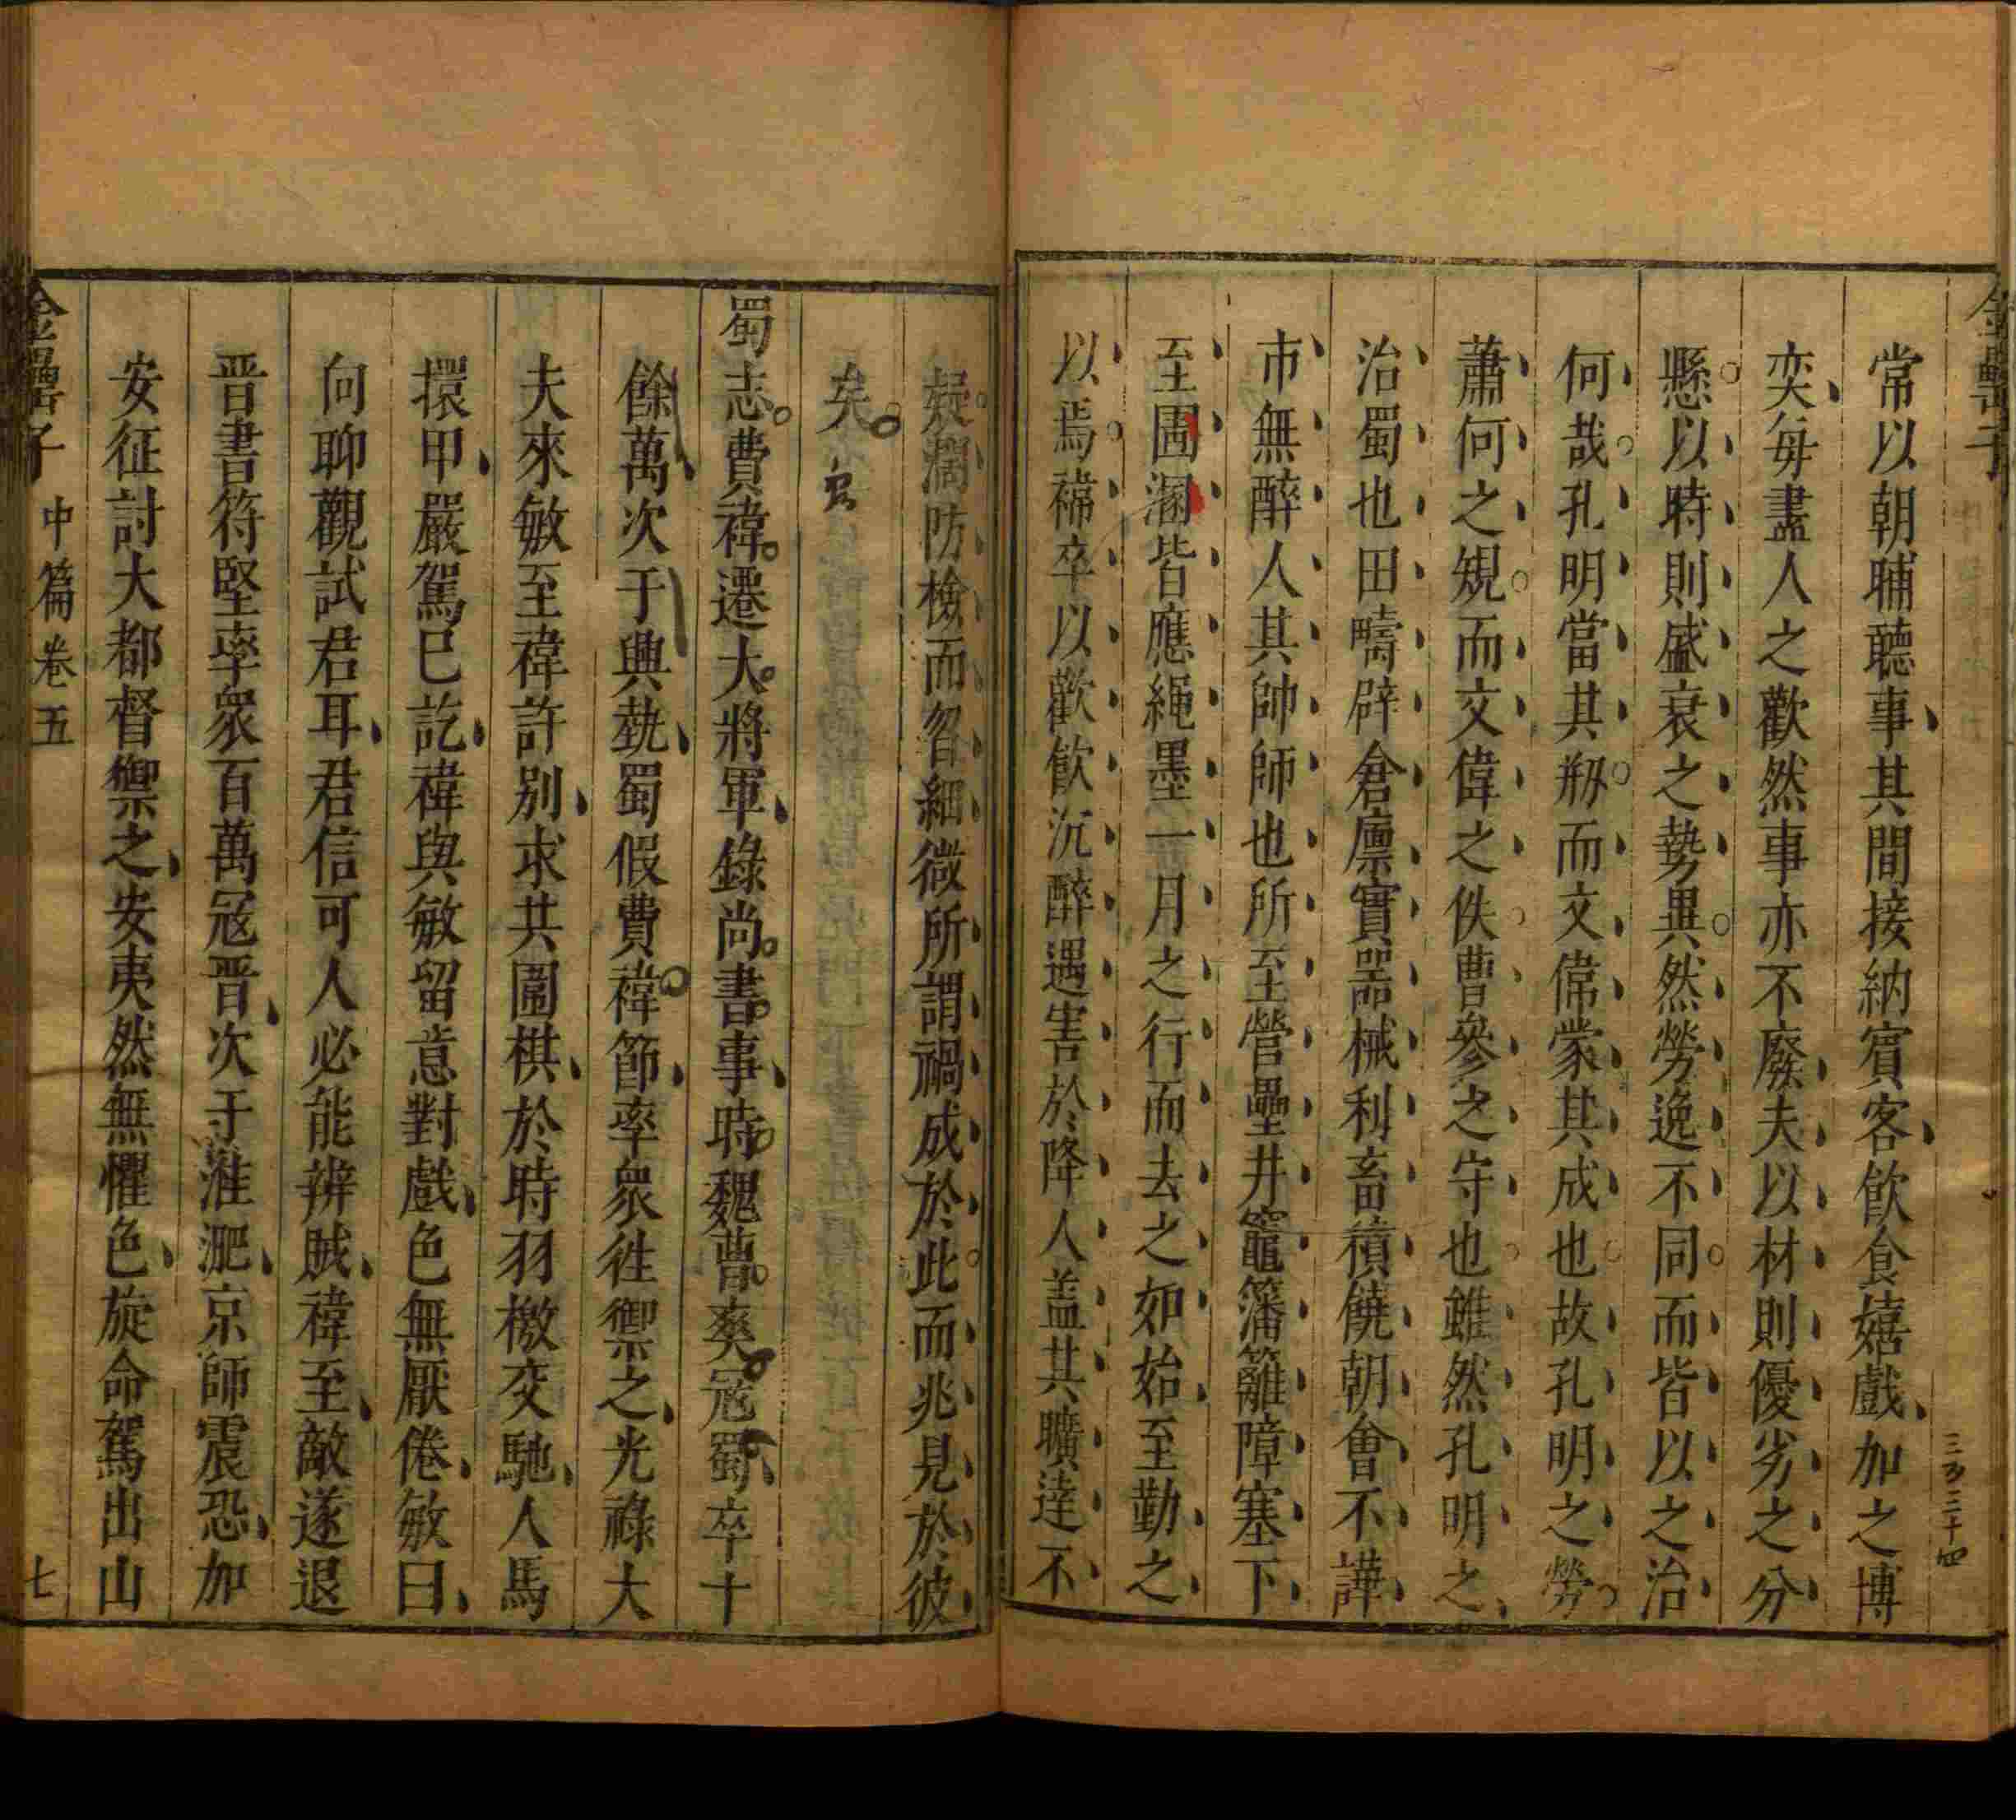 金罍子
三万三十四
常以朝晡聽事其間接納賓客飮食嬉戲加之博
奕每盡人之歡然事亦不廢夫以材則優劣之分
懸以時則盛衰之勢異然勞逸不同而皆以之治
何哉孔明當其剏而文偉蒙其成也故孔明之勞
蕭何之䂓而文偉之佚曹參之守也雖然孔明之
治蜀也田疇辟倉廪實器械利畜積饒朝會不譁
市無醉人其帥師也所至營壘井竈藩籬障塞下
至圊溷皆應繩墨一月之行而去之如始至勤之
以焉禕卒以歡飮沉醉遇害於降人盖其曠達不
疑濶防檢而畧細微所謂禍成於此而兆見於彼
矣
蜀志費禕遷大將軍錄尚書事時魏曹爽冦蜀卒十
餘萬次于興執蜀假費禕節率衆徃禦之光祿大
夫來敏至禕許别求共圍棋於時羽檄交馳人馬
擐甲嚴駕巳訖禕與敏留意對戲色無厭倦敏曰
向聊觀試君耳君信可人必能辨賊禕至敵遂退
晉書符堅率衆百萬冦晉次于淮淝京師震恐加
安征討大都督禦之安夷然無懼色旋命駕出山
金罍子 中篇卷五 七